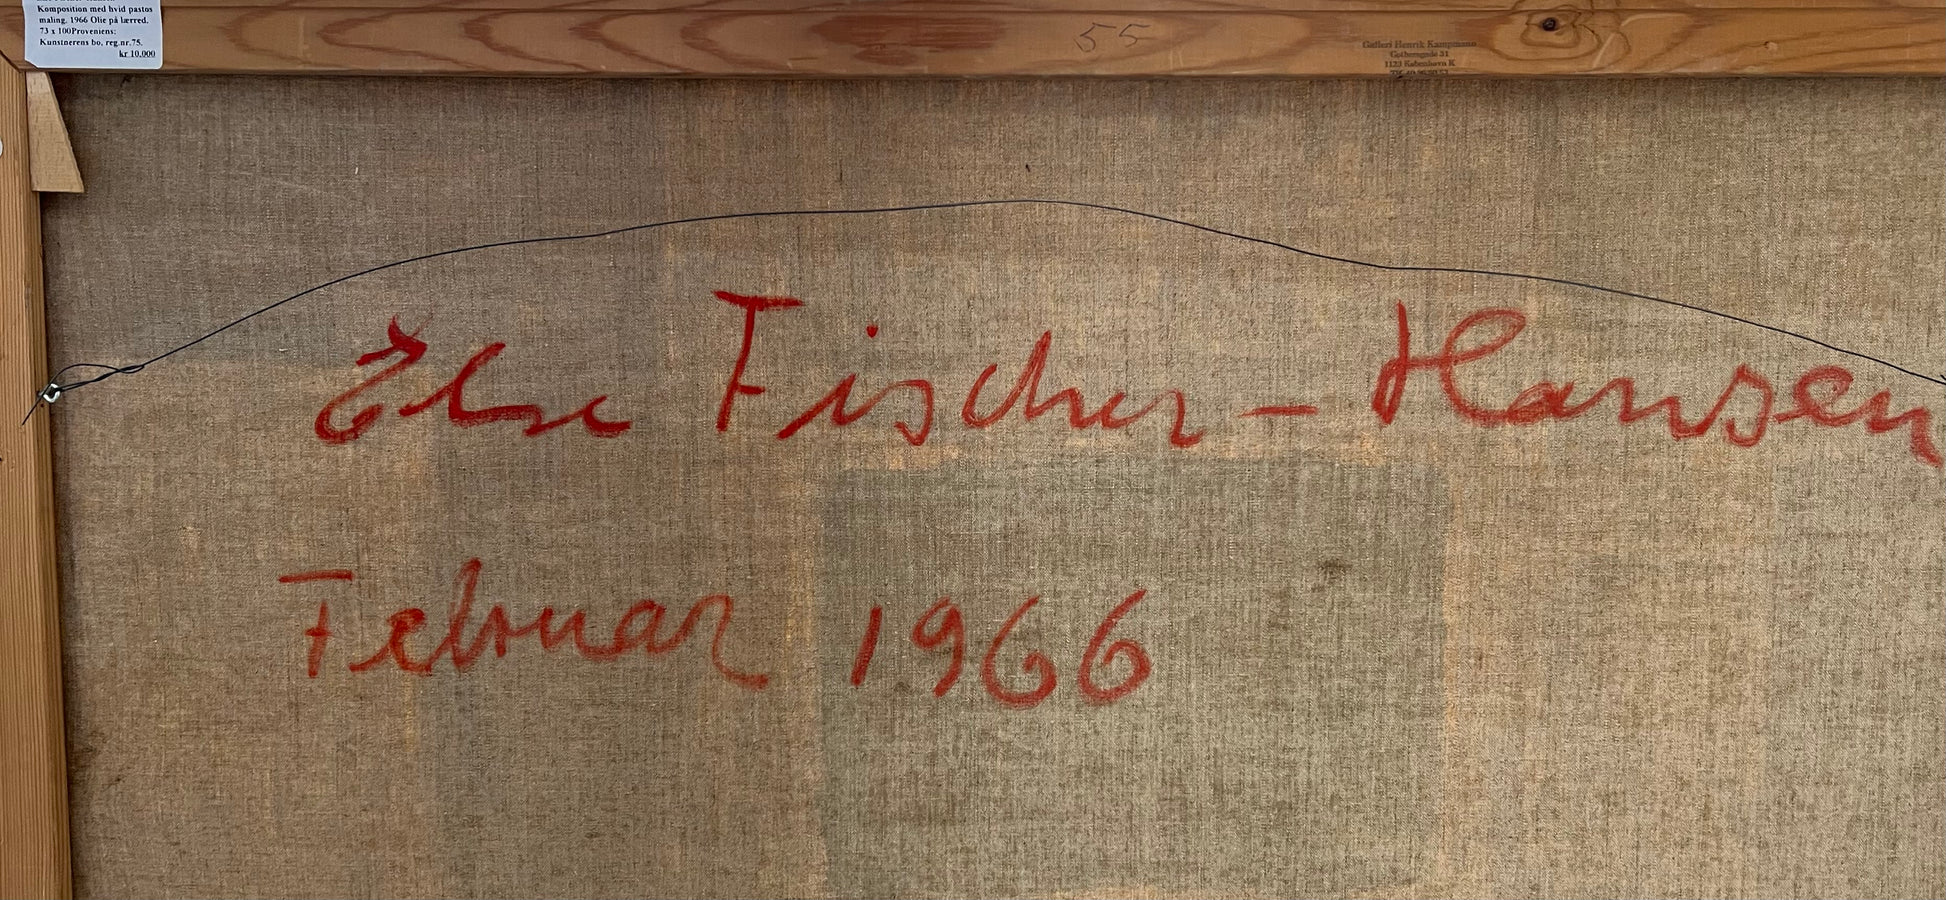 Komposition med hvid pastos
maling. 1966 Olie på lærred.
73 x 100Proveniens:
Kunstnerens bo, reg.nr.75.
kr 10.000
55
Galleri Henrik Kampmann
Gothersgade 31
1123 København K
Else Fischer-Hansen
Februar 1966